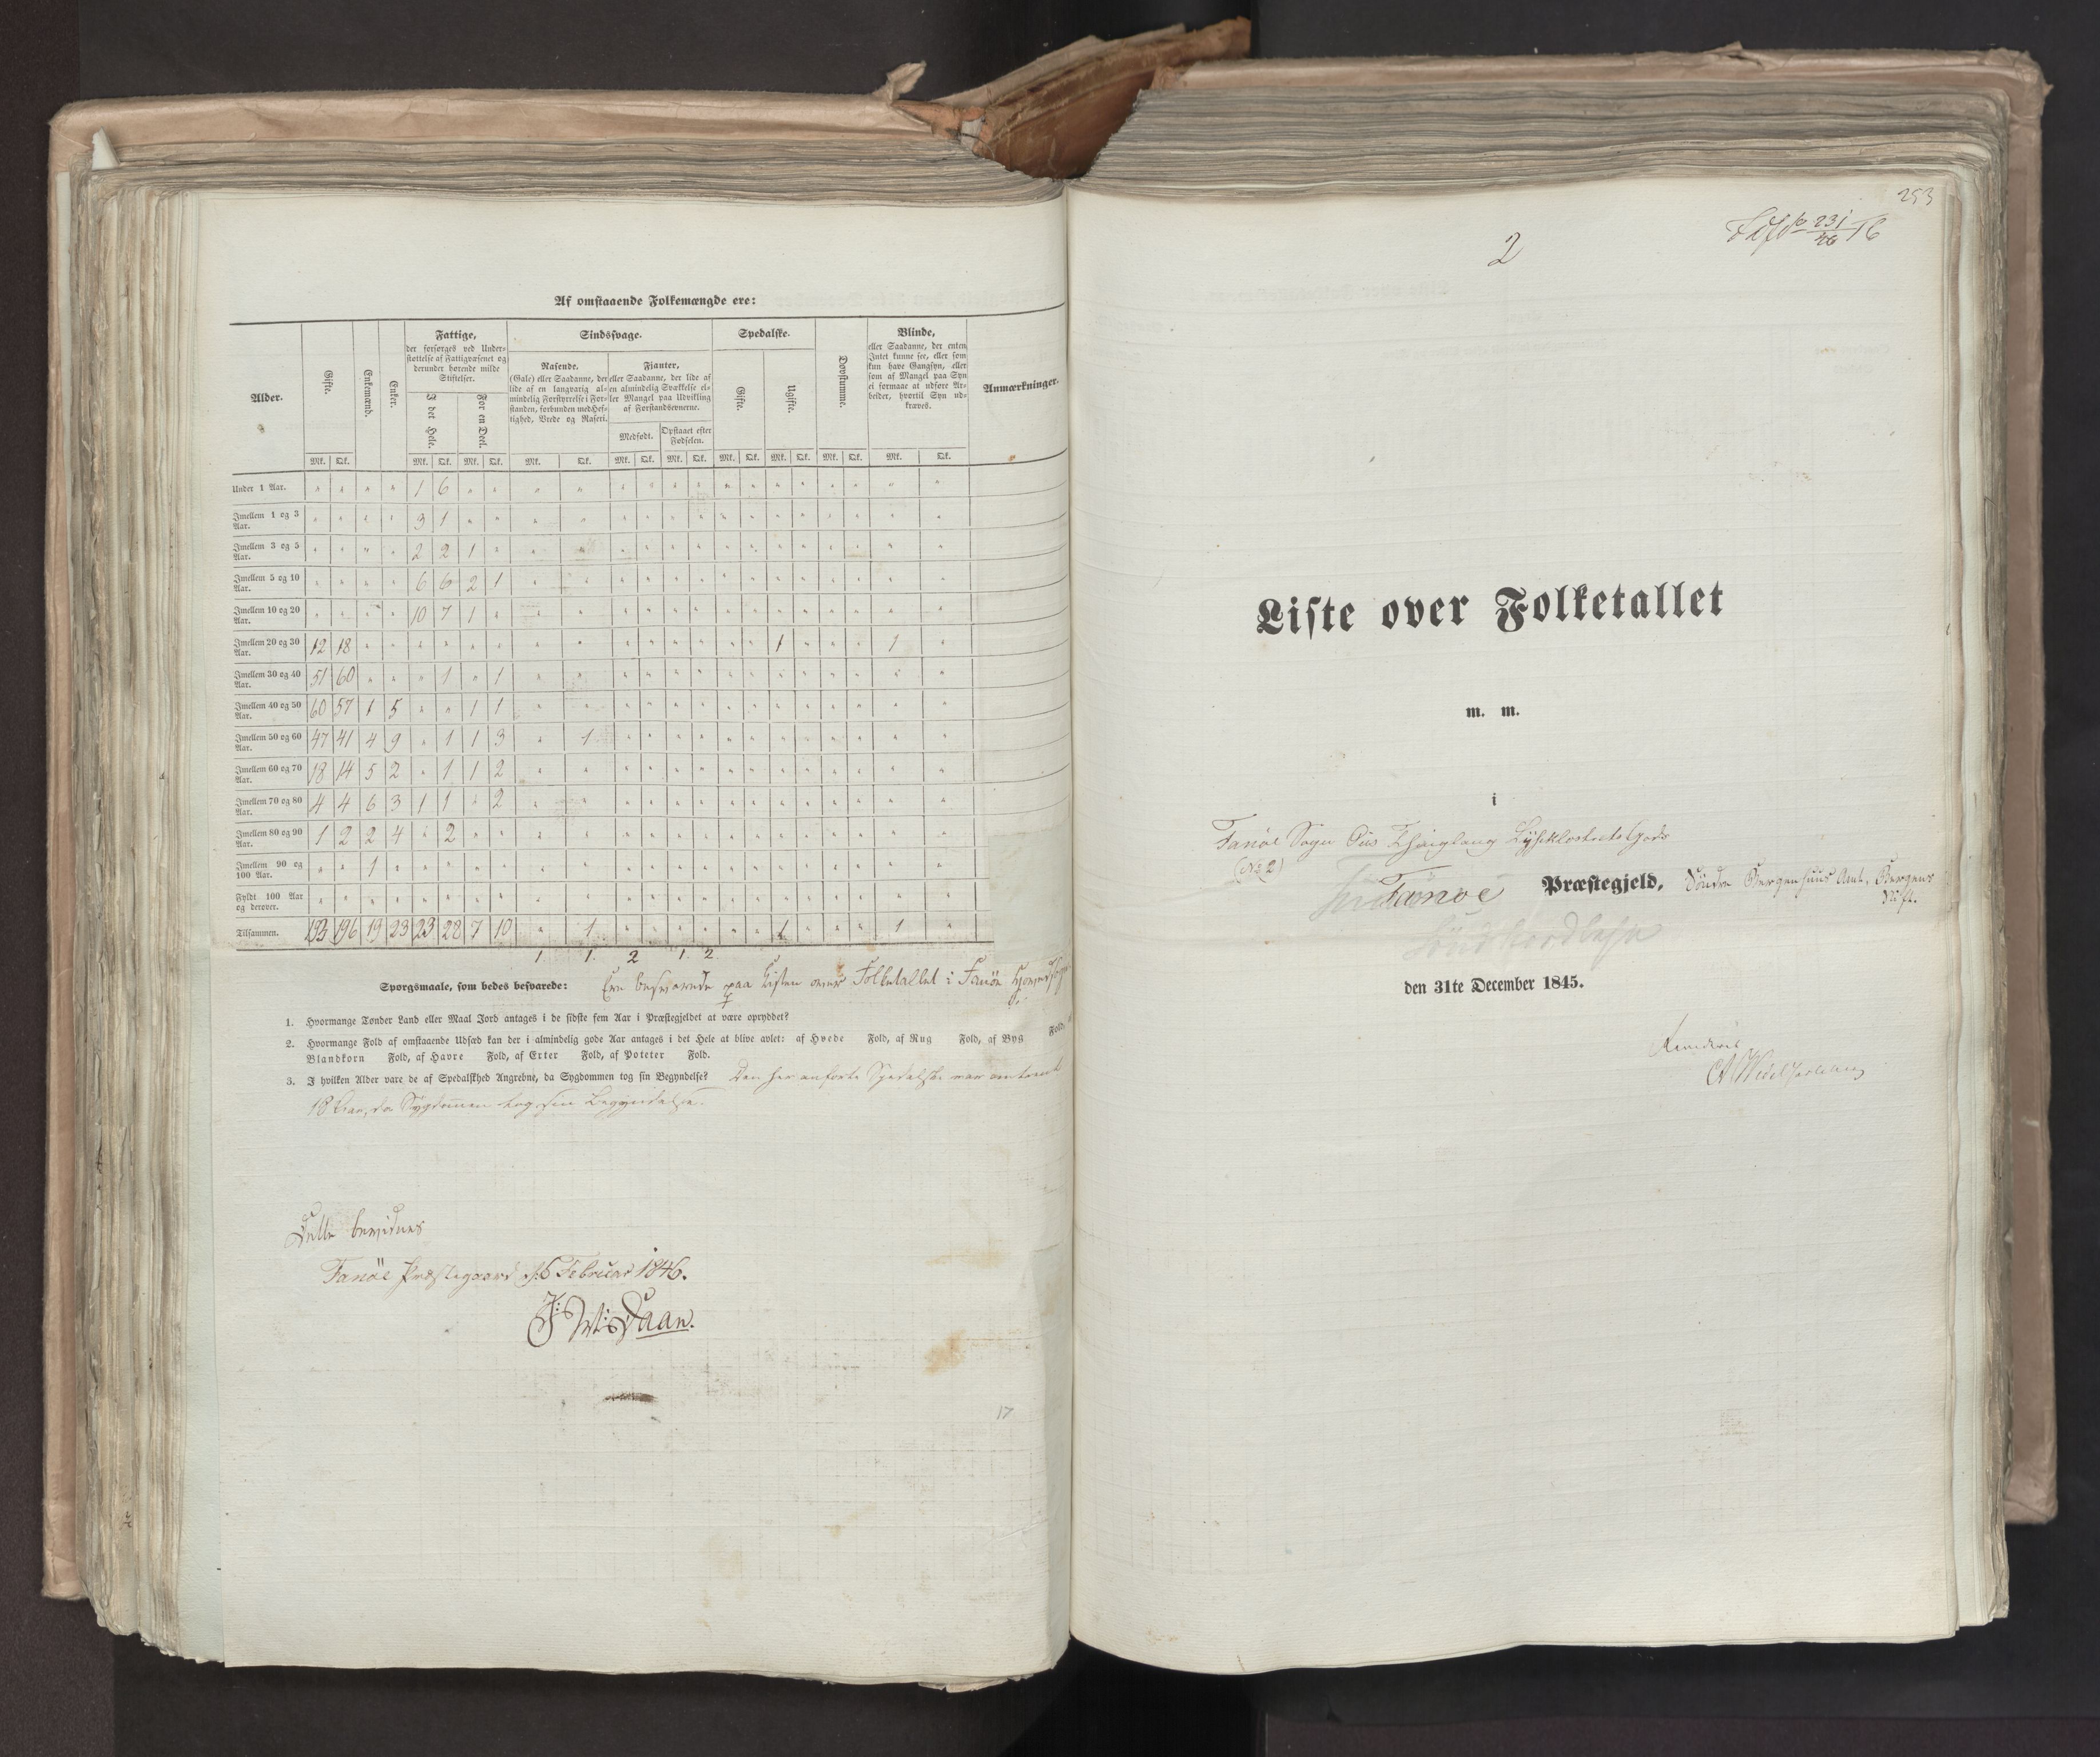 Af omstaaende Folkemængde ere:
Alder.
Gifte.
Enkemænd.
Enker.
Fattige,
der forsørges ved Under-
støttelse af Fattigvæsenet og
derunder hørende milde
Stiftelser.
I det Hele.
For en Deel.
Sindssvage.
Rasende.
(Gale) eller Saadanne, der
lide af en langvarig al-
mindelig Forstyrrelse i For-
standen, forbunden med Hef-
tighed, Vrede og Raseri.
Fianter,
eller Saadanne, der lide af
en almindelig Svækkelse el-
ler Mangel paa Udvikling
af Forstandsevnerne.
Medfødt.
Opstaaet efter
Fødselen.
Spedalske.
Gifte.
Ugifte.
Døvstumme.
Blinde,
eller Saadanne, der enten
Intet kunne see, eller som
kun have Gangsyn, eller
som af Mangel paa Syn
ei formaae at udføre Ar-
beider, hvortil Syn ud-
kræves.
Anmærkninger.
Mk. Qk. Mk. Qk. Mk. Qk. Mk. Qk. Mk. Qk. Mk. Qk. Mk. Qk. Mk. Qk. Mk. Qk. Mk. Qk.
Under 1 Aar. " " " " 1 6 " " " " " " " " " " " " " " " "
Imellem 1 og 3 Aar. " " " " 3 1 " " " " " " " " " " " " " " " "
Imellem 3 og 5 Aar. " " " " 2 2 1 " " " " " " " " " " " " " " "
Imellem 5 og 10 Aar. " " " " 6 6 2 1 " " " " " " " " " " " " " "
Imellem 10 og 20 Aar. " " " " 10 7 1 " " " " " " " " " " " " " " "
Imellem 20 og 30 Aar. 12 18 " " " " " " " " " " " " " " 1 " " " 1 "
Imellem 30 og 40 Aar. 51 60 " " " 1 " 1 " " " " " " " " " " " " " "
Imellem 40 og 50 Aar. 60 57 1 5 " " 1 1 " " " " " " " " " " " " " "
Imellem 50 og 60 Aar. 47 41 4 9 " 1 1 3 " 1 " " " " " " " " " " " "
Imellem 60 og 70 Aar. 18 14 5 2 " 1 1 2 " " " " " " " " " " " " " "
Imellem 70 og 80 Aar. 4 4 6 3 1 1 " 2 " " " " " " " " " " " " " "
Imellem 80 og 90 Aar. 1 2 2 4 " 2 " " " " " " " " " " " " " " " "
Imellem 90 og 100 Aar. " " 1 " " " " " " " " " " " " " " " " " " "
Fyldt 100 Aar og derover. " " " " " " " " " " " " " " " " " " " " " "
Tilsammen. 193 196 19 23 23 28 7 10 " 1 " " " " " " 1 " " " 1 "
1 1 2 1 2
Spørgsmaale, som bedes besvarede: Ere besvarede paa Listen over Folketallet i Fanöe
1. Hvormange Tønder Land eller Maal Jord antages i de sidste fem Aar i Præstegjeldet at være opryddet?
2. Hvormange Fold af omstaaende Udsæd kan der i almindelig gode Aar antages i det Hele at blive avlet: af Hvede Fold, af Rug Fold, af Byg Fold, af
Blandkorn Fold, af Havre Fold, af Erter Fold, af Poteter Fold.
3. I hvilken Alder vare de af Spedalskhed Angrebne, da Sygdommen tog sin Begyndelse? Den her anførte Spedalske var omtrent
18 Aar, da Sygdommen tog sin Begyndelse.
Dette bevidnes
Fanöe Præstegaard d. 6 Februar 1846.
J: W: Daan.
17
253
2
231
46
16
Liste over Folketallet
m. m.
i
Fanöe Sogn Ous Thinglaug Lyseklosters Gods
(No 2)
Fanöe Præstegjeld, Söndre Bergenhuus Amt, Bergens
Stift.
Söndhordlehn
den 31te December 1845.
Revideret